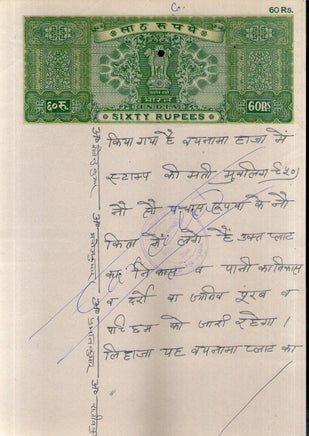 60 Rs.
साठ रूपये
भारत
INDIA
६०रु.
60RS
SIXTY RUPEES
किया गया है बयनामा हाजा में
स्टाम्प की मती मुबलिग ६५०)
नौ सौ पचास रूपया के नौ
किता में लगे हैं उक्त प्लाट
का निकास व पानी का निकास
व पूरब व
पश्चिम को जारी रहेगा।
लिहाजा यह बयनामा प्लाट का